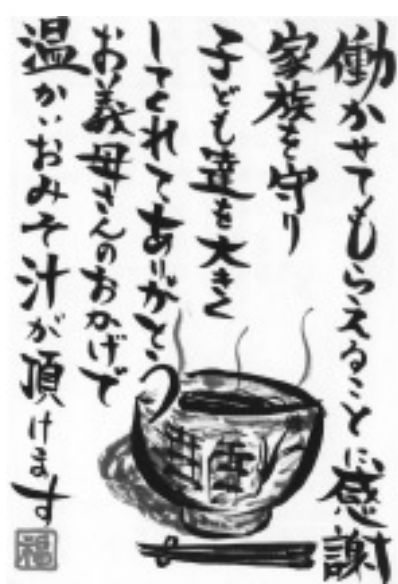 働かせてもらえることに感謝
家族を守り
子ども達を大きく
してくれてありがとう
お義母さんのおかげで
温かいおみそ汁が頂けます
福